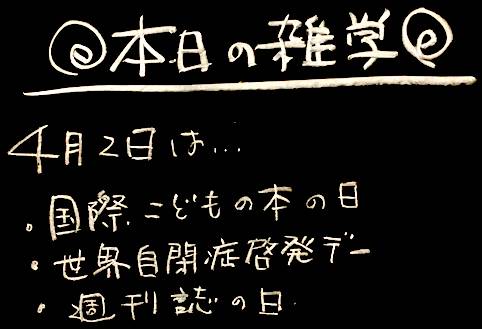 @本日の雑学@
4月2日は...
・国際こどもの本の日
・世界自閉症啓発デー
・週刊誌の日